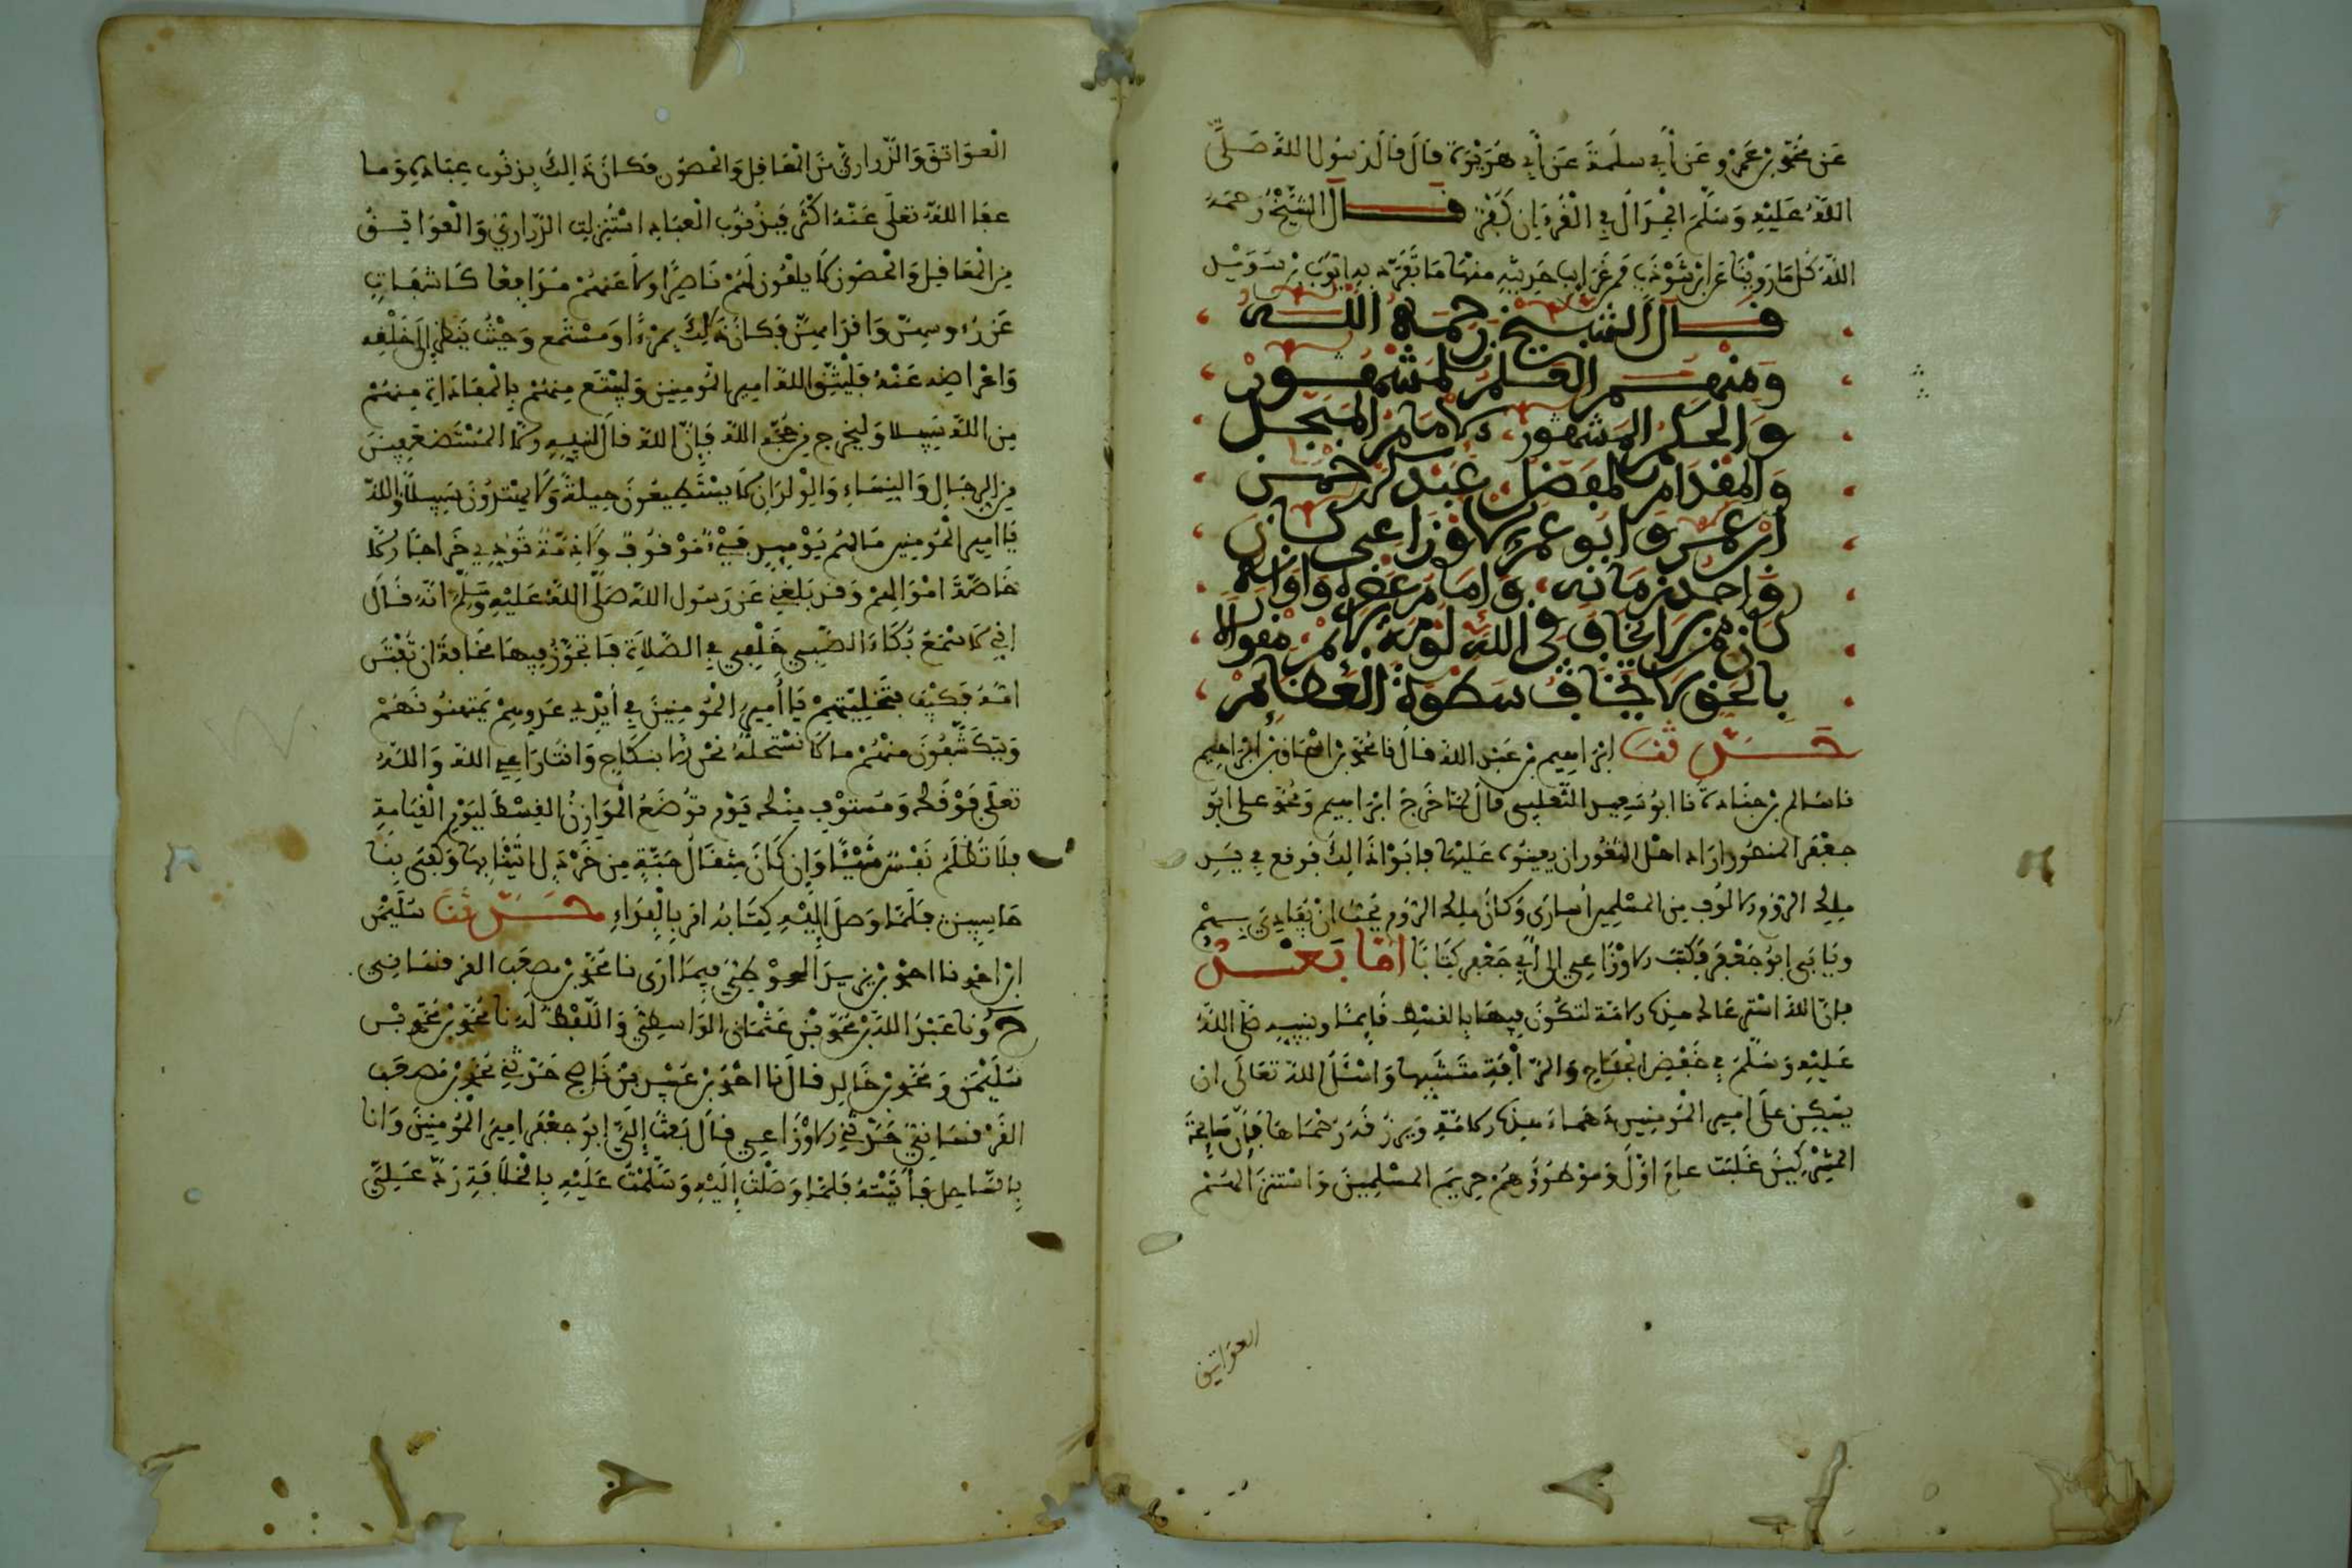 عَن محَمَّد بن عَمْرو عَن أبي سلمةَ عَن أبي هُرَيْرَة قالَ قالَ رَسُول اللهَ صَلَّى
اللهُ عَلَيْهِ وَسَلَّمَ الجِدَالُ فِي الْقُرْءَانِ كُفْر قال الشَّيْخُ رَحمهُ
اللهُ كُل مَا رَوَيْنَا عَن ابْن شَوْذَبٍ فمِن غَرَايِب حَدِيثِهِ منْهَا مَا تَفَرَّد بِهِ ايّوبَ بْن سَوَيْد
قال الشيخ رحمه الله
ومنهم العلم المنشور
والحكم المشهور الامام المبجل
والمقدام المفضل عبد الرحمن
ابن عمرو ابو عمرو الاوزاعي كان
واحد زمانه وامام عصره واوانه
كان ممن لا يخاف في الله لومة لائم مقوالا
بالحق لا يخاف سطوة العظائم
حَدّثنا إبْرَاهِيم بن عَبْد اللهَ قالَ نا محَمَّد بن اسْحَاق بن إبْرَاهِيم
نا سَالم بن جنَادة نا ابُو سَعِيد الثَّعلبِي قالَ لمّا خَرَجَ ابْرَاهِيم وَمُحمّد على ابُو
جعْفَر المنصُور ارَاد اهْل الثّغُور ان يعينُوه عَلَيْهَا فابَوْا ذَالِكَ فوقع فِي يَدِ
ملِك الرُّوم الالُوف مِن المسْلِمين أسارَى وَكانَ ملِك الرُّوم يحبّ انْ يُفَادِيَ بِهِمْ
ويَابَى ابُو جَعْفَر فَكتَبَ الاوْزَاعِي إلى أبي جَعْفر كِتَابًا امّا بَعْد
فإنّ اللهَ اسْترعَاك هذه الامّة لتكُونَ فِيهَا بالقسْط قَايمًا وبنبِيه صَلّى اللهُ
عَلَيْهِ وَسَلّمَ فِي خَفْضِ الْجنَاح وَالرّأفَةِ متَشَبِّها وَاسْئَل اللهَ تعَالَى ان
يسَكِّن علَى امِير الْمُؤمِنِين دَهمَاء هذه الامّةِ وَيرْزقَهُ رحْمَتَهَا فَإنّ سَايِحَةَ
المشْرِكِينَ غَلبَت عامَ اوّلَ وَموْطؤهُمْ حرِيمَ المسْلمِينَ وَاسْتنزَالهُمُ
العوَاتِق
الْعوَاتِقَ وَالذّرارِيَّ مِنَ الْمعَاقِل وَالحصُونِ فَكانَ ذَالِكَ بِذنُوب العِبَادِ وَمَا
عفَا اللهُ تعَلَى عَنْهُ اكْثَر فَبِذنُوب الْعبَادِ اسْتُنزِلت الذّرارِيُّ وَالْعوَاتِقُ
مِن الْمعَاقِل وَالحصُون لَا يلْقُون لهُمْ نَاصِرًا ولا عَنهُمْ مُدَافِعًا كَاشِفَاتٍ
عَن رُءوسِهِنّ وَاقْدَامِهِنّ فَكانَ ذَالِكَ بِمَرْءًا وَمسْتمَع وَحَيْثُ يَنظر اللهُ إلَى خَلْقِه
وَاعْرَاضِهِم عَنْهُ فَلْيتّقِ اللهَ امِير الْمُومِنِين وَلْيبْتَغ مِنهُمْ بِالْمفَادَاةِ مِنهُمْ
مِن اللهِ سَبِيلا وَليخْرج مِن حجّةِ اللهِ فَإنّ اللهَ قالَ لنبِيهِ والمُسْتَضعَفِينَ
مِن الرِّجَالِ وَالنِّسَاءِ وَالْوِلْدَانِ لَا يسْتَطِيعُونَ حِيلَةً وَلَا يهْتَدُونَ سَبِيلًا وَاللهِ
يَا امِير الْمُومِنِين مَا لهُم يَوْمِيذٍ فَيْءٌ موْقُوفٌ وَلَا ذِمّةٌ تُودِي خَرَاجًا الا
خَاصّةَ امْوَالهِمْ وَقَد بَلَغَنِي عَن رَسُول اللهِ صَلّى اللهُ عَلَيْهِ وَسَلّم انّهُ قَالَ
إنّي لَاسْمَعُ بُكَاءَ الصّبِي خَلْفِي فِي الصّلَاةِ فَاتجَوّزُ فِيهَا مخَافَةَ ان تُفْتَن
امّهُ فَكَيْفَ بتَخْلِيَتهِمْ يَا أمِير الْمُومِنِينَ فِي أيْدِي عَدوهِمْ يَمتهنُونَهُمْ
وَيَتكَشّفُونَ منْهُمْ ما لَا نَسْتَحلّهُ نحْن إلا بنكَاحٍ وَانْتَ رَاعِي اللهِ وَاللهُ
تعلَى فَوْقَك وَمسْتوْفٍ مِنْك يَوْم تُوضَعُ الْموَازِينُ الْقِسْطَ ليَوْمِ الْقِيَامَةِ
فلَا تُظْلَمُ نَفْسٌ شَيْئًا وَإن كَانَ مِثقَالُ حَبّةٍ مِن خَرْدَلٍ اتَيْنَا بِهَا وَكفَى بِنَا
حاسِبِين فلَمّا وَصَلَ إلَيْهِ كِتَابُه امَر بِالْفِدَاءِ حَدّثنَا سُلَيْمَن
ابْن احمَد نا احْمَد بْن يزِيد الْحوْطِيُّ فِيمَا ارَى نا محَمَّد بْن مصْعَب القرقسَانِي
ح ونَا عَبْدُ اللهِ بْن محَمّد بْن عثْمَان الوَاسِطِيّ وَاللّفْظُ لَه نا محَمَّد بْن محَمّد بْن
سُلَيْمَن وَمحَمَّد بْن خَالِد قالَ نا احْمَد بْن عُبَيْد بْن نَاصِح حَدّثنِي محَمَّد بْن مُصْعَب
القَرْقسَانِيّ حَدّثنِي الاوْزَاعِي قَال بَعثَ إلَيّ ابُو جعْفَر امِيرُ الْمُؤمِنِينَ وَانَا
بِالسّاحِل فَأتَيْتهُ فَلمّا وَصَلْتُ إلَيْهِ وَسَلّمْتُ عَلَيْهِ بِالْخلَافَةِ رَدّ عَلَيّ